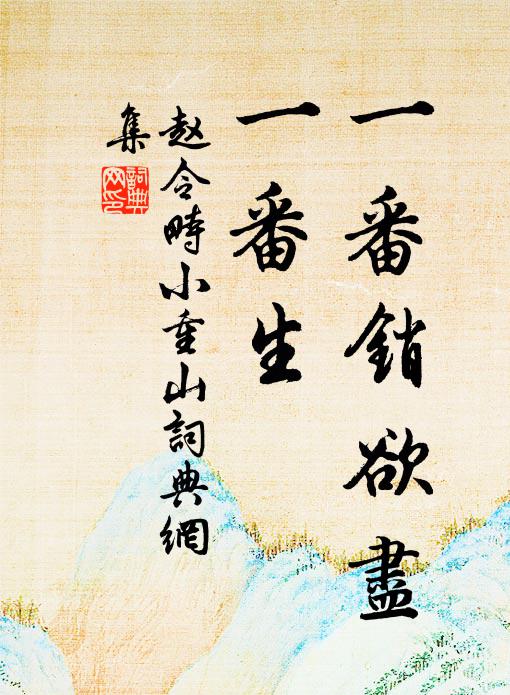 一番銷欲盡
一番生
赵令畤小重山詞典網
集
詞典網印